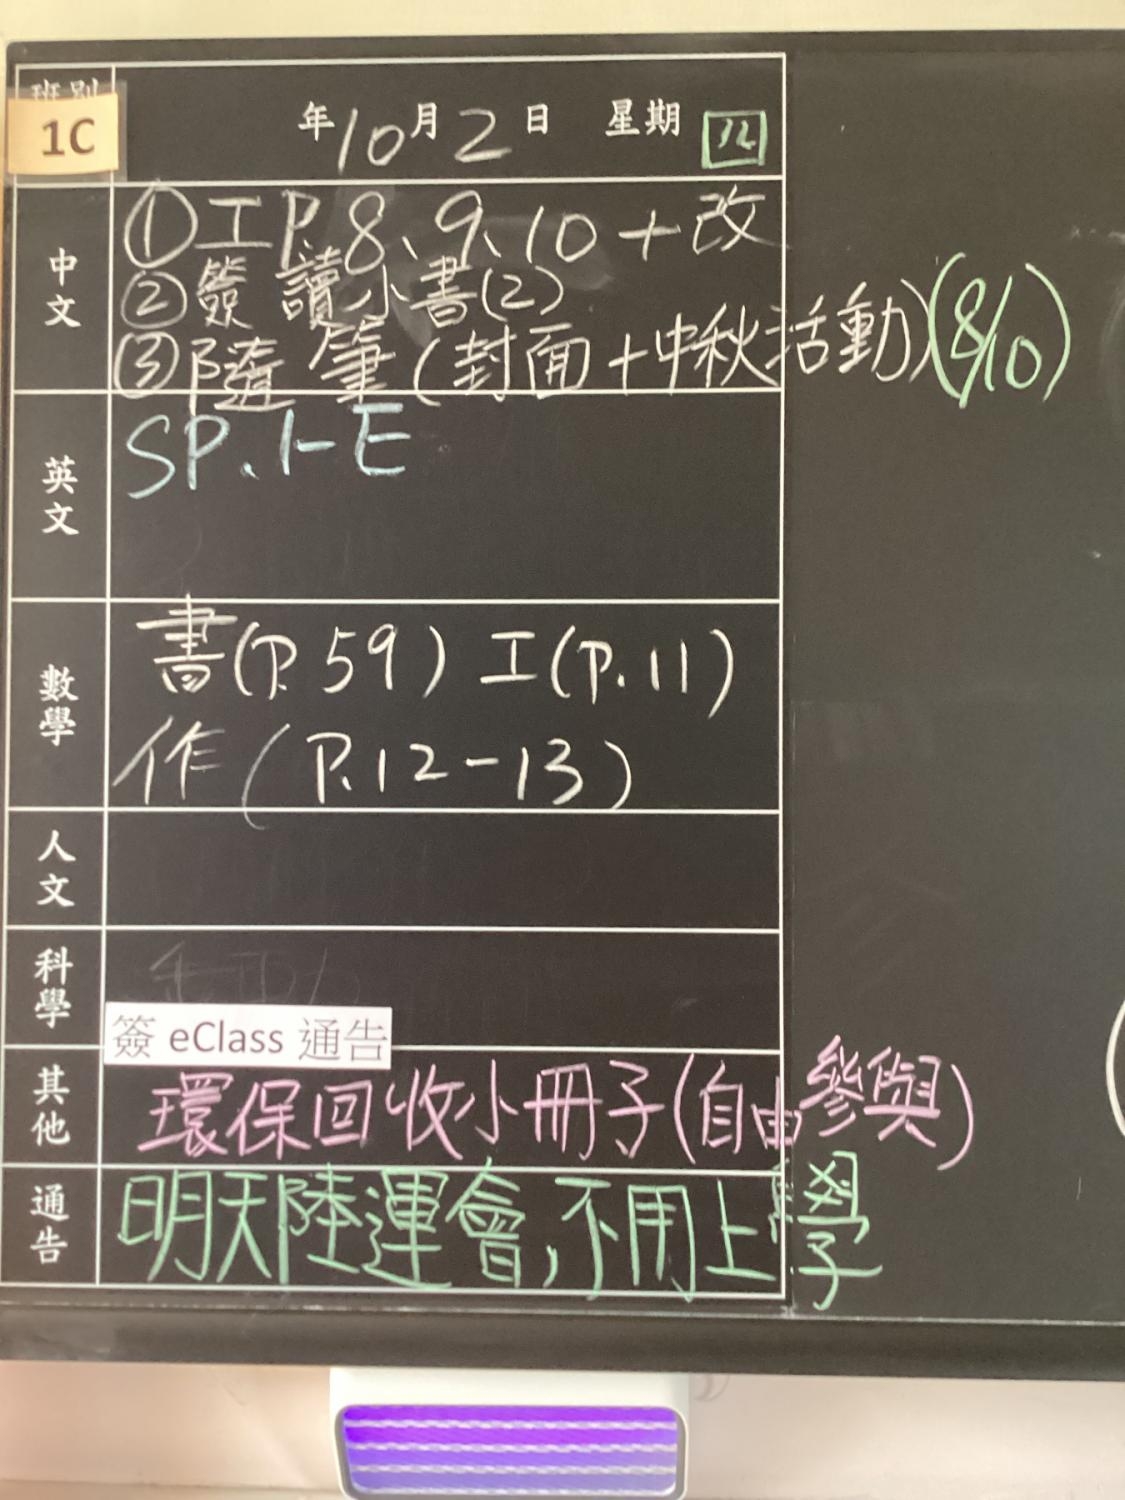 班別
1C
年10月2日 星期四
中文
①工P.8、9、10+改
②簽讀小書(2)
③隨筆(封面+中秋活動)(8/10)
英文
SP.1-E
數學
書(P.59) 工(P.11)
作(P.12-13)
人文
科學
簽 eClass 通告
其他
環保回收小冊子(自由參與)
通告
明天陸運會,不用上學